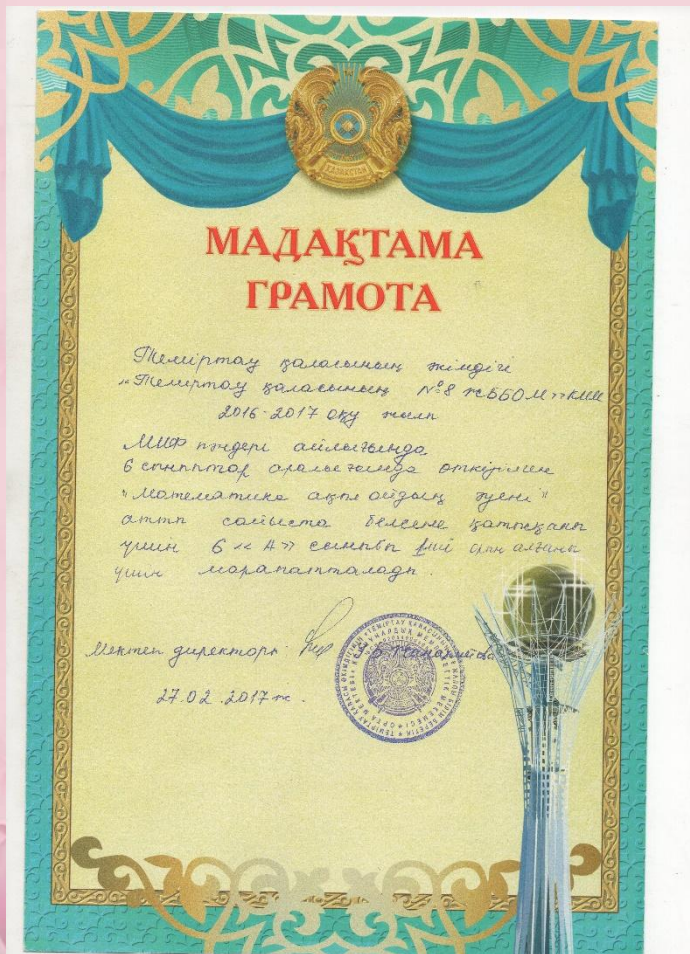 ҚАЗАҚСТАН
МАДАҚТАМА
ГРАМОТА
Теміртау қаласының әкімдігі
«Теміртау қаласының №8 ЖББОМ» КММ
2016-2017 оқу жылы
МИФ пәндері айлығында
6 сыныптар аралығында өткізілген
"Математика ақыл ойдың әуені"
атты сайыста белсене қатысқаны
үшін 6 «А» сыныбы орын алғаны
үшін марапатталады.
Мектеп директоры
27.02.2017ж.